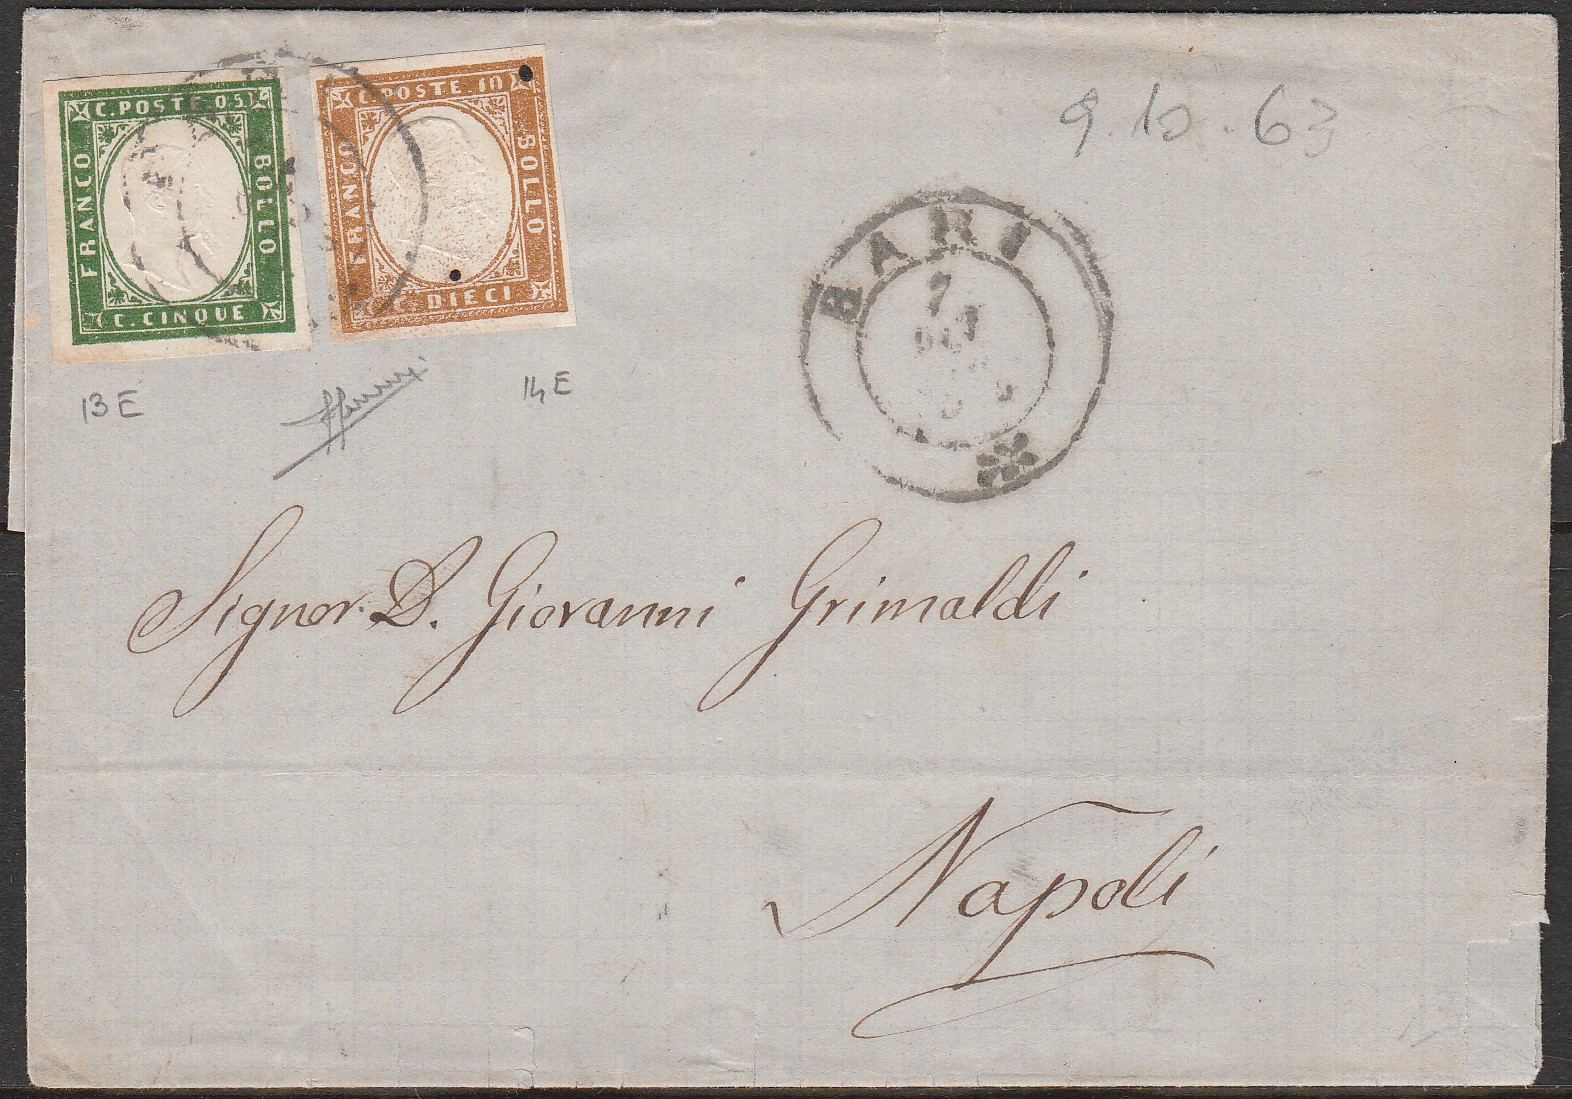 C. POSTE. 05
FRANCO
BOLLO
C. CINQUE
C. POSTE. 10
FRANCO
BOLLO
C. DIECI
9.10.63
BARI
7
OTT
13 E
14 E
Signor. D. Giovanni Grimaldi
Napoli